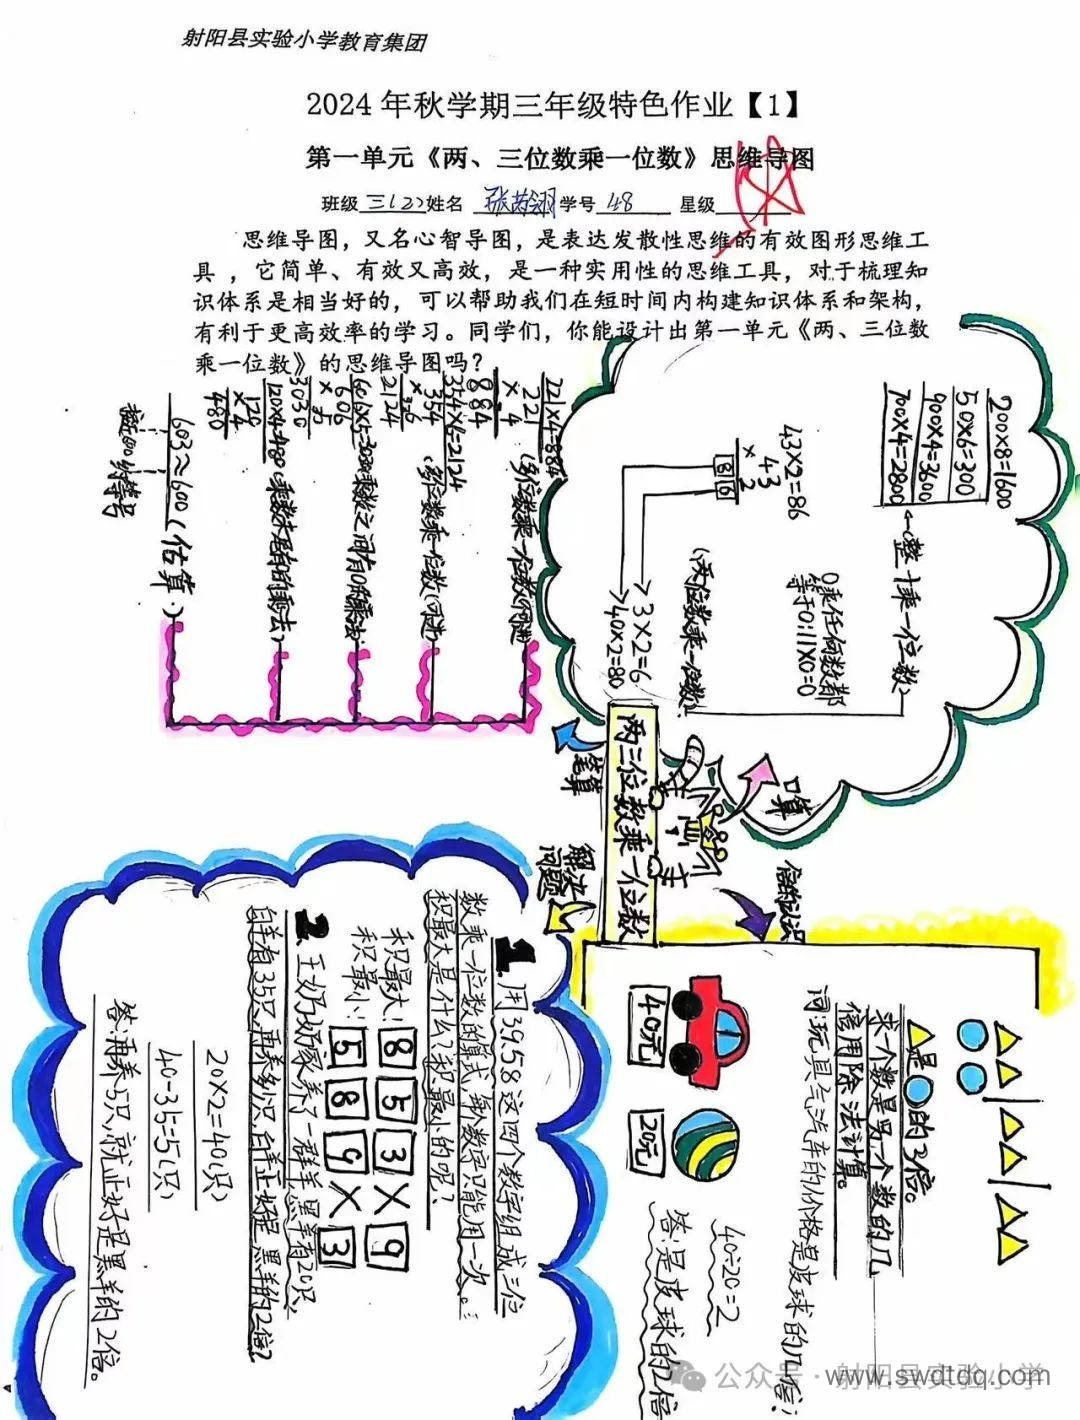 射阳县实验小学教育集团
2024年秋学期三年级特色作业【1】
第一单元《两、三位数乘一位数》思维导图
班级 三(2) 姓名 学号 48 星级
思维导图，又名心智导图，是表达发散性思维的有效图形思维工
具，它简单、有效又高效，是一种实用性的思维工具，对于梳理知
识体系是相当好的，可以帮助我们在短时间内构建知识体系和架构，
有利于更高效率的学习。同学们，你能设计出第一单元《两、三位数
乘一位数》的思维导图吗？
两三位数乘一位数
口算
200×8=1600
50×6=300
900×4=3600
700×4=2800
(整十乘一位数)
0乘任何数都
等于0:11×0=0
43×2=86
43
× 2
86
3×2=6
40×2=80
(两位数乘一位数)
笔算
221×4=884
221
× 4
884
(多位数乘一位数
354×6=2124
354
× 6
2124
(多位数乘一位数
606×5=3030
606
× 5
3030
乘数之间有0的乘法
120×4=480
120
×4
480
(乘数末尾有0的乘法)
603≈600(估算)
倍的认识
是 的3倍。
求一个数是另一个数的几
倍用除法计算。
问:玩具汽车的价格是皮球的几倍?
40元
20元
40÷20=2
答:是皮球的2倍
解决
问题
1.用3.9.5.8这四个数字组成三位
数乘一位数的算式,每个数字只能用一次。
积最大是什么?积最小的呢?
积最大: 8 5 3 × 9
积最小: 5 8 9 × 3
2.王奶奶家养了一群羊,黑羊有20只,
白羊有35只,再养多少只,白羊正好是黑羊的2倍?
20×2=40(只)
40-35=5(只)
答:再养5只,就正好是黑羊的2倍。
公众号·射阳县实验小学
www.swdtdq.com